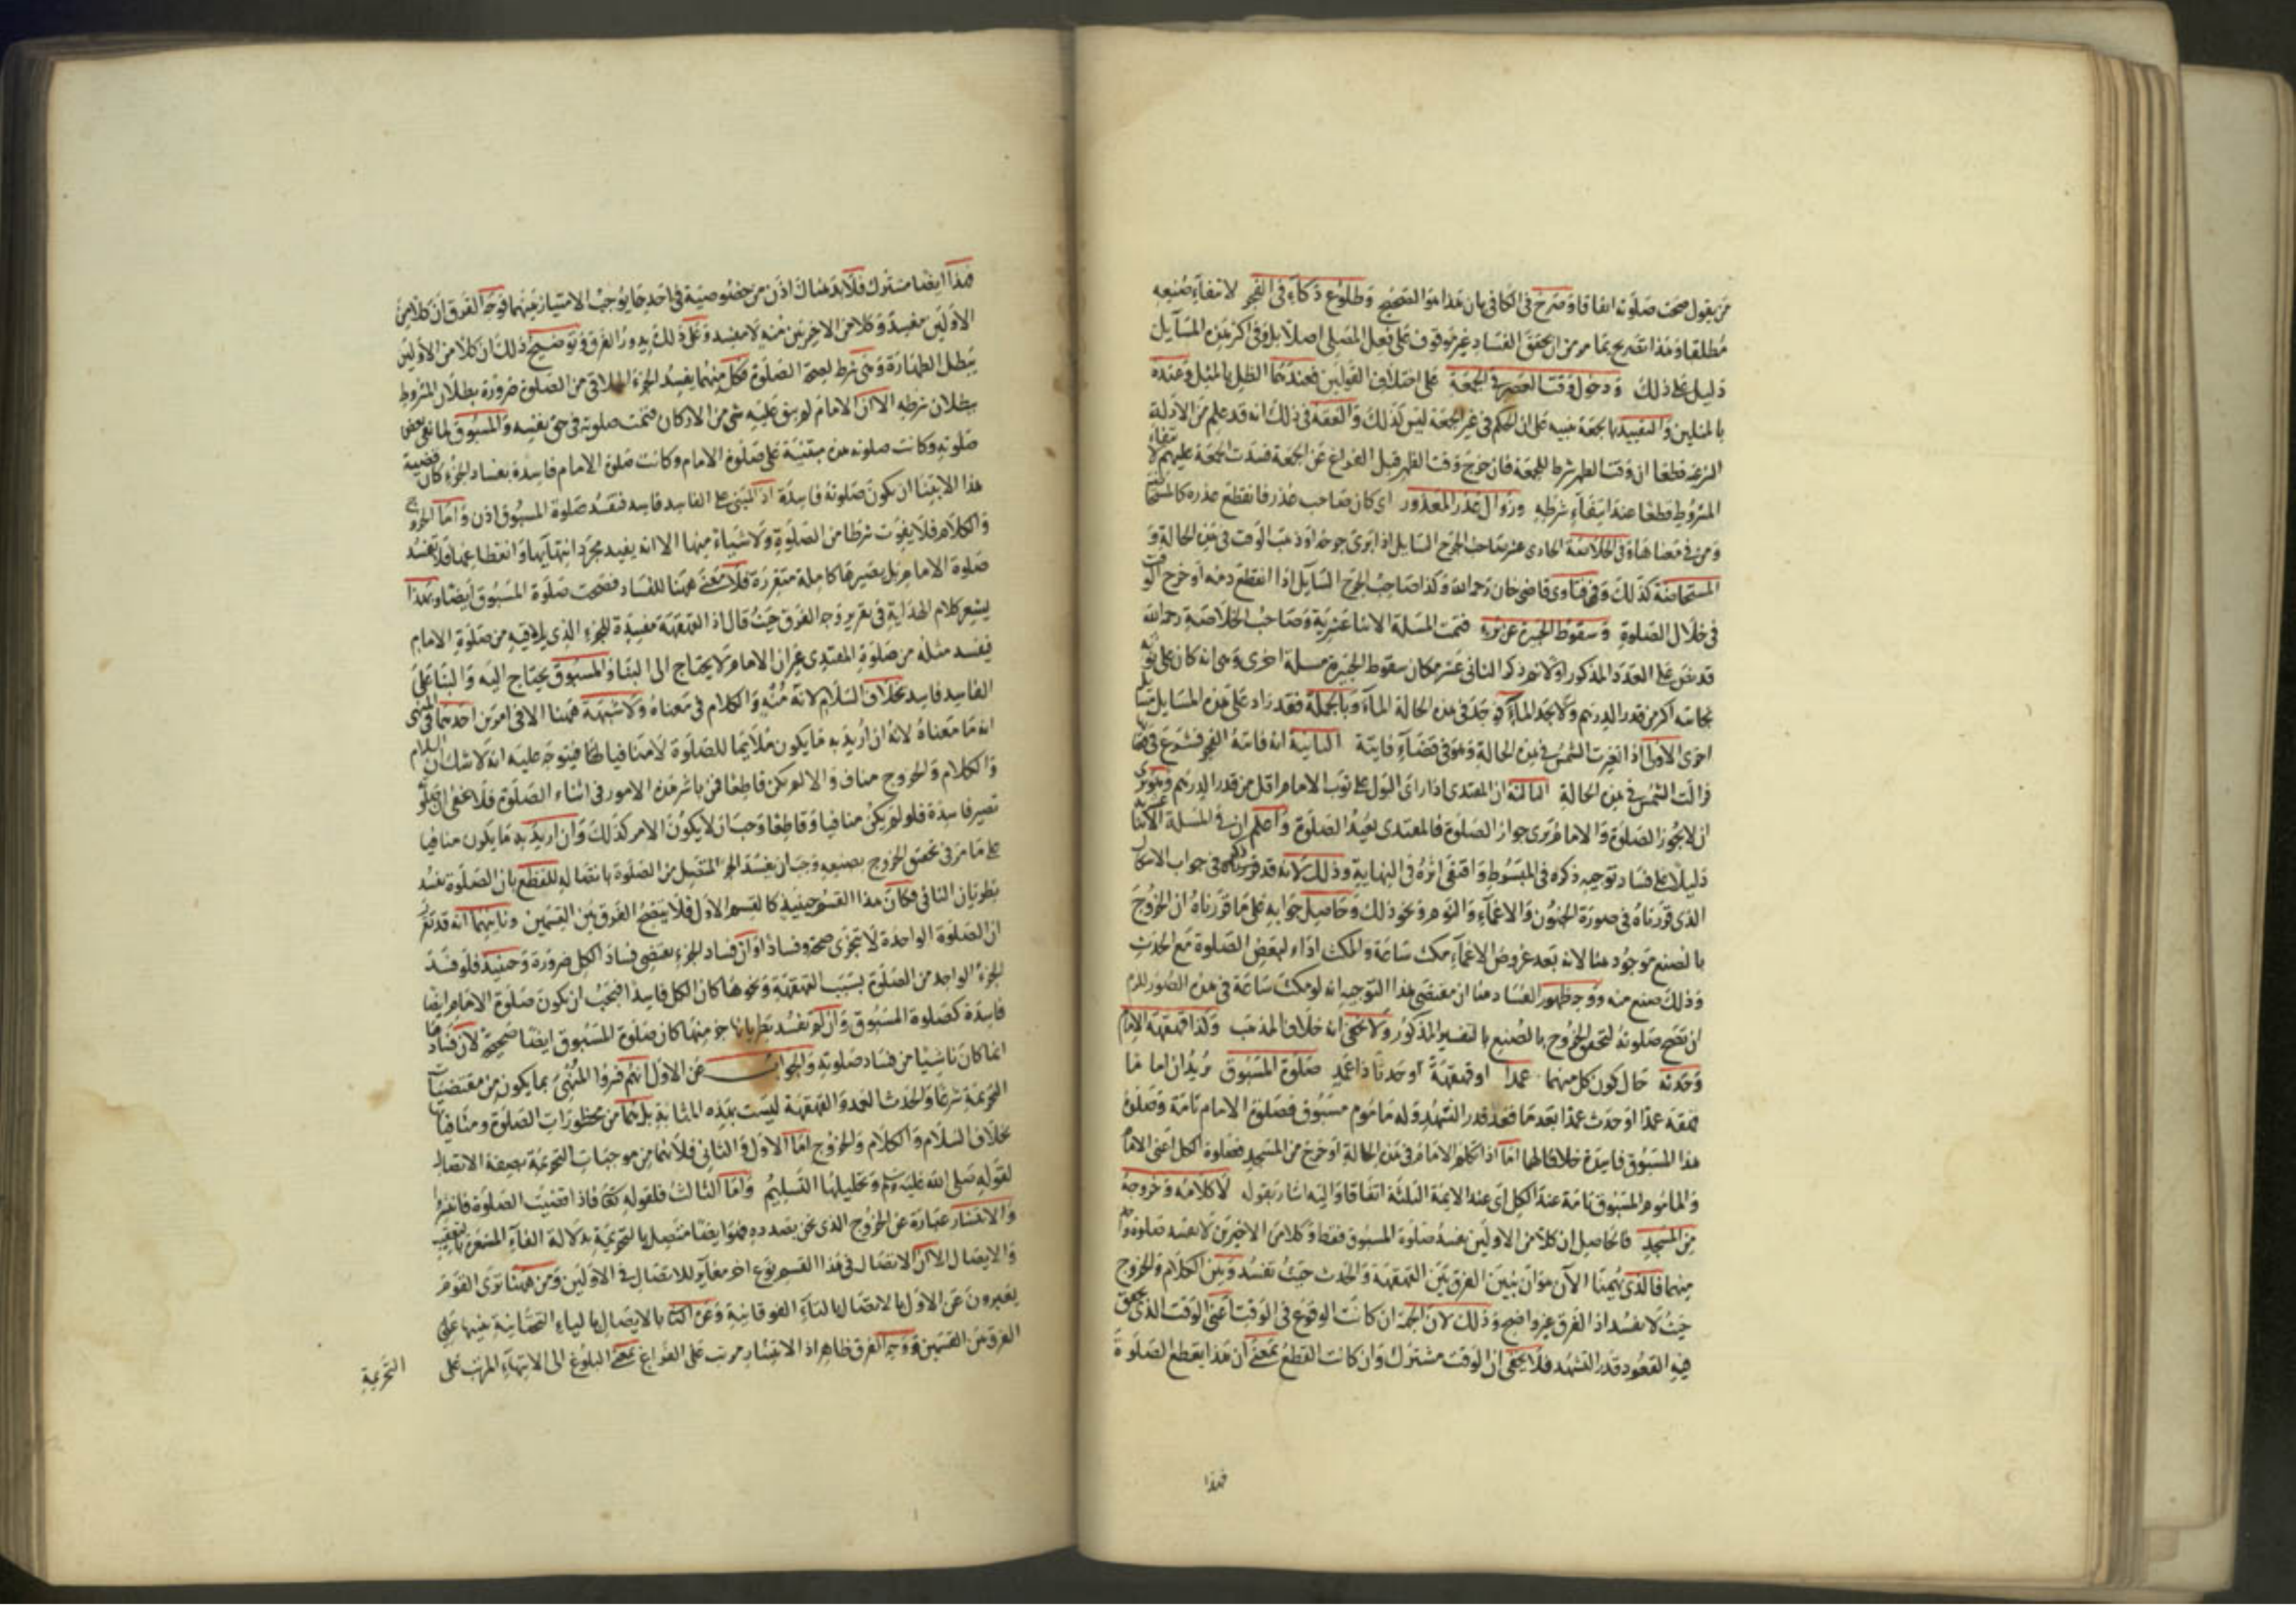 من يقول صحت صلوته اتفاقا وصرح في الكافي بان هذا هو الصحيح وطلوع ذكاء في الفجر لانتفاء صنيعه
مطلقا وهذا تصريح بما مر من ان تحقق الفساد غير موقوف على فعل المصلى اصلا بل وفى اكثر هذه المسائل
دليل على ذلك ودخول وقت العصر في الجمعة على اختلاف القولين فعندهما الظل بالمثل وعنده
بالمثلين والتقييد بالجمعة تنبيه على ان الحكم في غير الجمعة ليس كذلك والفقه في ذلك انه قد علم من الادلة
الشرعية قطعا ان وقت الظهر شرط للجمعة فان خرج وقت الظهر قبل الفراغ عن الجمعة فسدت الجمعة عليهم لانتفاء
المشروط قطعا عند انتفاء شرطه وزوال عذر المعذور اى كان صاحب عذر فانقطع عذره كالمستحاضة
ومن في معناها وفى الخلاصة الحادى عشر صاحب الجرح السايل اذا ابرئ جرحه او ذهب الوقت في هذه الحالة و
المستحاضة كذلك وفى فتاوى قاضى خان رحمه الله وكذا صاحب الجرح السايل اذا انقطع دمه او خرج الوقت
في خلال الصلوة وسقوط الجبيرة عن برء فتمت المسئلة الاثنا عشرية وصاحب الخلاصة رحمه الله
قد نص على العدد المذكور اولا ثم ذكر الثانى عشر مكان سقوط الجبيرة مسئلة اخرى وهى انه كان على ثوبه
نجاسة اكثر من قدر الدرهم ولا يجد الماء فوجد في هذه الحالة الماء وبالجملة فقد زاد على هذه المسايل مسايل
اخرى الاولى اذا تغيرت الشمس في هذه الحالة وهو في قضاء فايتة الثانية انه فاتته الفجر فشرع في قضائها
فزالت الشمس في هذه الحالة الثالثة ان المقتدى اذا راى البول على ثوب الامام اقل من قدر الدرهم وهو يرى
ان لا يجوز الصلوة والامام يرى جواز الصلوة فالمقتدى يعيد الصلوة واعلم ان في المسئلة الاثنا عشرية
دليلا على فساد توجيه ذكره في المبسوط واقتفى اثره في النهاية وذلك لانه قد قرر الحكم في جواب الاشكال
الذى قررناه في صورة الجنون والاغماء والنوم ونحو ذلك وحاصل جوابه على ما قررناه ان الخروج
بالصنع موجود هنا لانه بعد عروض الاغماء مكث ساعة والمكث اداء لبعض الصلوة مع الحدث
وذلك صنع منه ووجه ظهور الفساد هنا ان مقتضى هذا التوجيه انه لو مكث ساعة في هذه الصور للزم
ان تصح صلوته لتحقق الخروج بالصنع بالتفسير المذكور ولا يخفى انه خلاف المذهب وكذا قهقهة الامام
وحدثه حال كون كل منهما عمدا او قهقهة او حدثا ذا عمد صلوة المسبوق يريد ان اماما
قهقه عمدا او حدث عمدا بعد ما قعد قدر التشهد وله ماموم مسبوق فصلوة الامام تامة وصلوة
هذا المسبوق فاسدة خلافا لهما اما اذا تكلم الامام في هذه الحالة او خرج من المسجد فصلوة الكل اعنى الامام
والماموم المسبوق تامة عند الكل اى عند الايمة الثلثة اتفاقا واليه اشار بقوله لا كلامه وخروجه
من المسجد فالحاصل ان كلا من الاولين يفسد صلوة المسبوق فقط وكلا من الاخيرين لا يفسد صلوة واحد
منهما فالذى يهمنا الآن هو ان نبين الفرق بين القهقهة والحدث حيث تفسد وبين الكلام والخروج
حيث لا تفسد اذ الفرق غير واضح وذلك لان الجهة ان كانت الوقوع في الوقت اعنى الوقت الذى يتحقق
فيه القعود قدر التشهد فلا يخفى ان الوقت مشترك وان كانت القطع بمعنى ان هذا يقطع الصلوة
فهذا
فهذا ايضا مشترك فلا بد هناك اذن من خصوصية في احدهما يوجب الامتياز بينهما فوجه الفرق ان كلا من
الاولين مفسد وكلا من الاخرين منه لا مفسد وعلى ذلك يدور الفرق وتوضيح ذلك ان كلا من الاولين
يبطل الطهارة وهى شرط لصحة الصلوة فكل منهما يفسد الجزء الملاقى من الصلوة ضرورة بطلان المشروط
ببطلان شرطه الا ان الامام لم يبق عليه شئ من الاركان فتمت صلوته في حق نفسه والمسبوق لما بقى بعض
صلوته وكانت صلوته هذه مبتنية على صلوة الامام وكانت صلوة الامام فاسدة بفساد الجزء كان قضية
هذا الابتنا ان يكون صلوته فاسدة اذ المبنى على الفاسد فاسد فتفسد صلوة المسبوق اذن واما الخروج
والكلام فلا يفوت شرطا من الصلوة ولا شياء منها الا انه يفيد مجرد انتهايها وانقطاعها فلا تفسد
صلوة الامام بل تصيرها كاملة متقررة فلا معنى ههنا للفساد فصحت صلوة المسبوق ايضا وبهذا
يشعر كلام الهداية في تقرير وجه الفرق حيث قال اذ القهقهة مفسدة للجزء الذى يلاقيه من صلوة الامام
فيفسد مثله من صلوة المقتدى غير ان الامام لا يحتاج الى البنا والمسبوق يحتاج اليه والبنا على
الفاسد فاسد بخلاف السلام لانه منه والكلام في معناه ولا شبهة ههنا الا في امرين احدهما في المنهى
انه ما معناه لانه ان اريد به ما يكون ملايما للصلوة لا منافيا لها فيتوجه عليه انه لا شك ان السلام
والكلام والخروج مناف والا لم يكن قاطعا فمن باشر هذه الامور في اثناء الصلوة فلا يخفى ان صلوته
تصير فاسدة فلو لم يكن منافيا وقاطعا وجب ان لا يكون الامر كذلك وان اريد به ما يكون منافيا
على ما مر في تحقق الخروج بصنعه وجب ان يفسد الجزء المتصل من الصلوة باتصاله للقطع بان الصلوة تفسد
بطريان النافى فكان هذا القسم حينئذ كالقسم الاول فلا يتضح الفرق بين القسمين وثانيهما انه قد تقرر
ان الصلوة الواحدة لا تتجزى صحة وفسادا وان فساد الجزء يقتضى فساد الكل ضرورة وحينئذ فلو فسد
الجزء الواحد من الصلوة بسبب القهقهة ونحوها كان الكل فاسدا فيجب ان يكون صلوة الامام ايضا
فاسدة كصلوة المسبوق وان لم تفسد بطريانها جزء منها كان صلوة المسبوق ايضا صحيحة لان فسادها
انما كان ناشيا من فساد صلوته والجواب عن الاول انهم فسروا المنهى بما يكون من مقتضيات
التحريمة شرعا والحدث العمد والقهقهة ليست بهذه المثابة بل هما من محظورات الصلوة ومنافياتها
بخلاف السلام والكلام والخروج اما الاول والثانى فلانهما من موجبات التحريمة بصفة الاتصال
لقوله صلى الله عليه وسلم وتحليلها التسليم واما الثالث فلقوله تعالى فاذا قضيت الصلوة فانتشروا
والانتشار عبارة عن الخروج الذى نحن بصدده فهو ايضا متصل بالتحريمة بدلالة الفاء المشعرة بالتعقيب
والايصال الا ان الاتصال في هذا القسم نوع اخر مغاير للاتصال في الاولين ومن ههنا ترى القوم
يعبرون عن الاول بالاتصال بالتاء الفوقانية وعن الثانى بالايصال بالياء التحتانية تنبيها على
الفرق بين القسمين ووجه الفرق ظاهر اذ الانتشار مرتب على الفراغ بمعنى البلوغ الى الانتهاء المرتب على
التحريمة